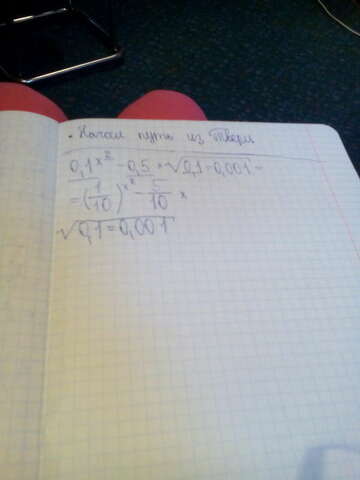 • Начал путь из Твери
0,1^x² - 0,5 × √0,1 = 0,001 =
= (1/10)^x² - 5/10 x
√0,1 = 0,001